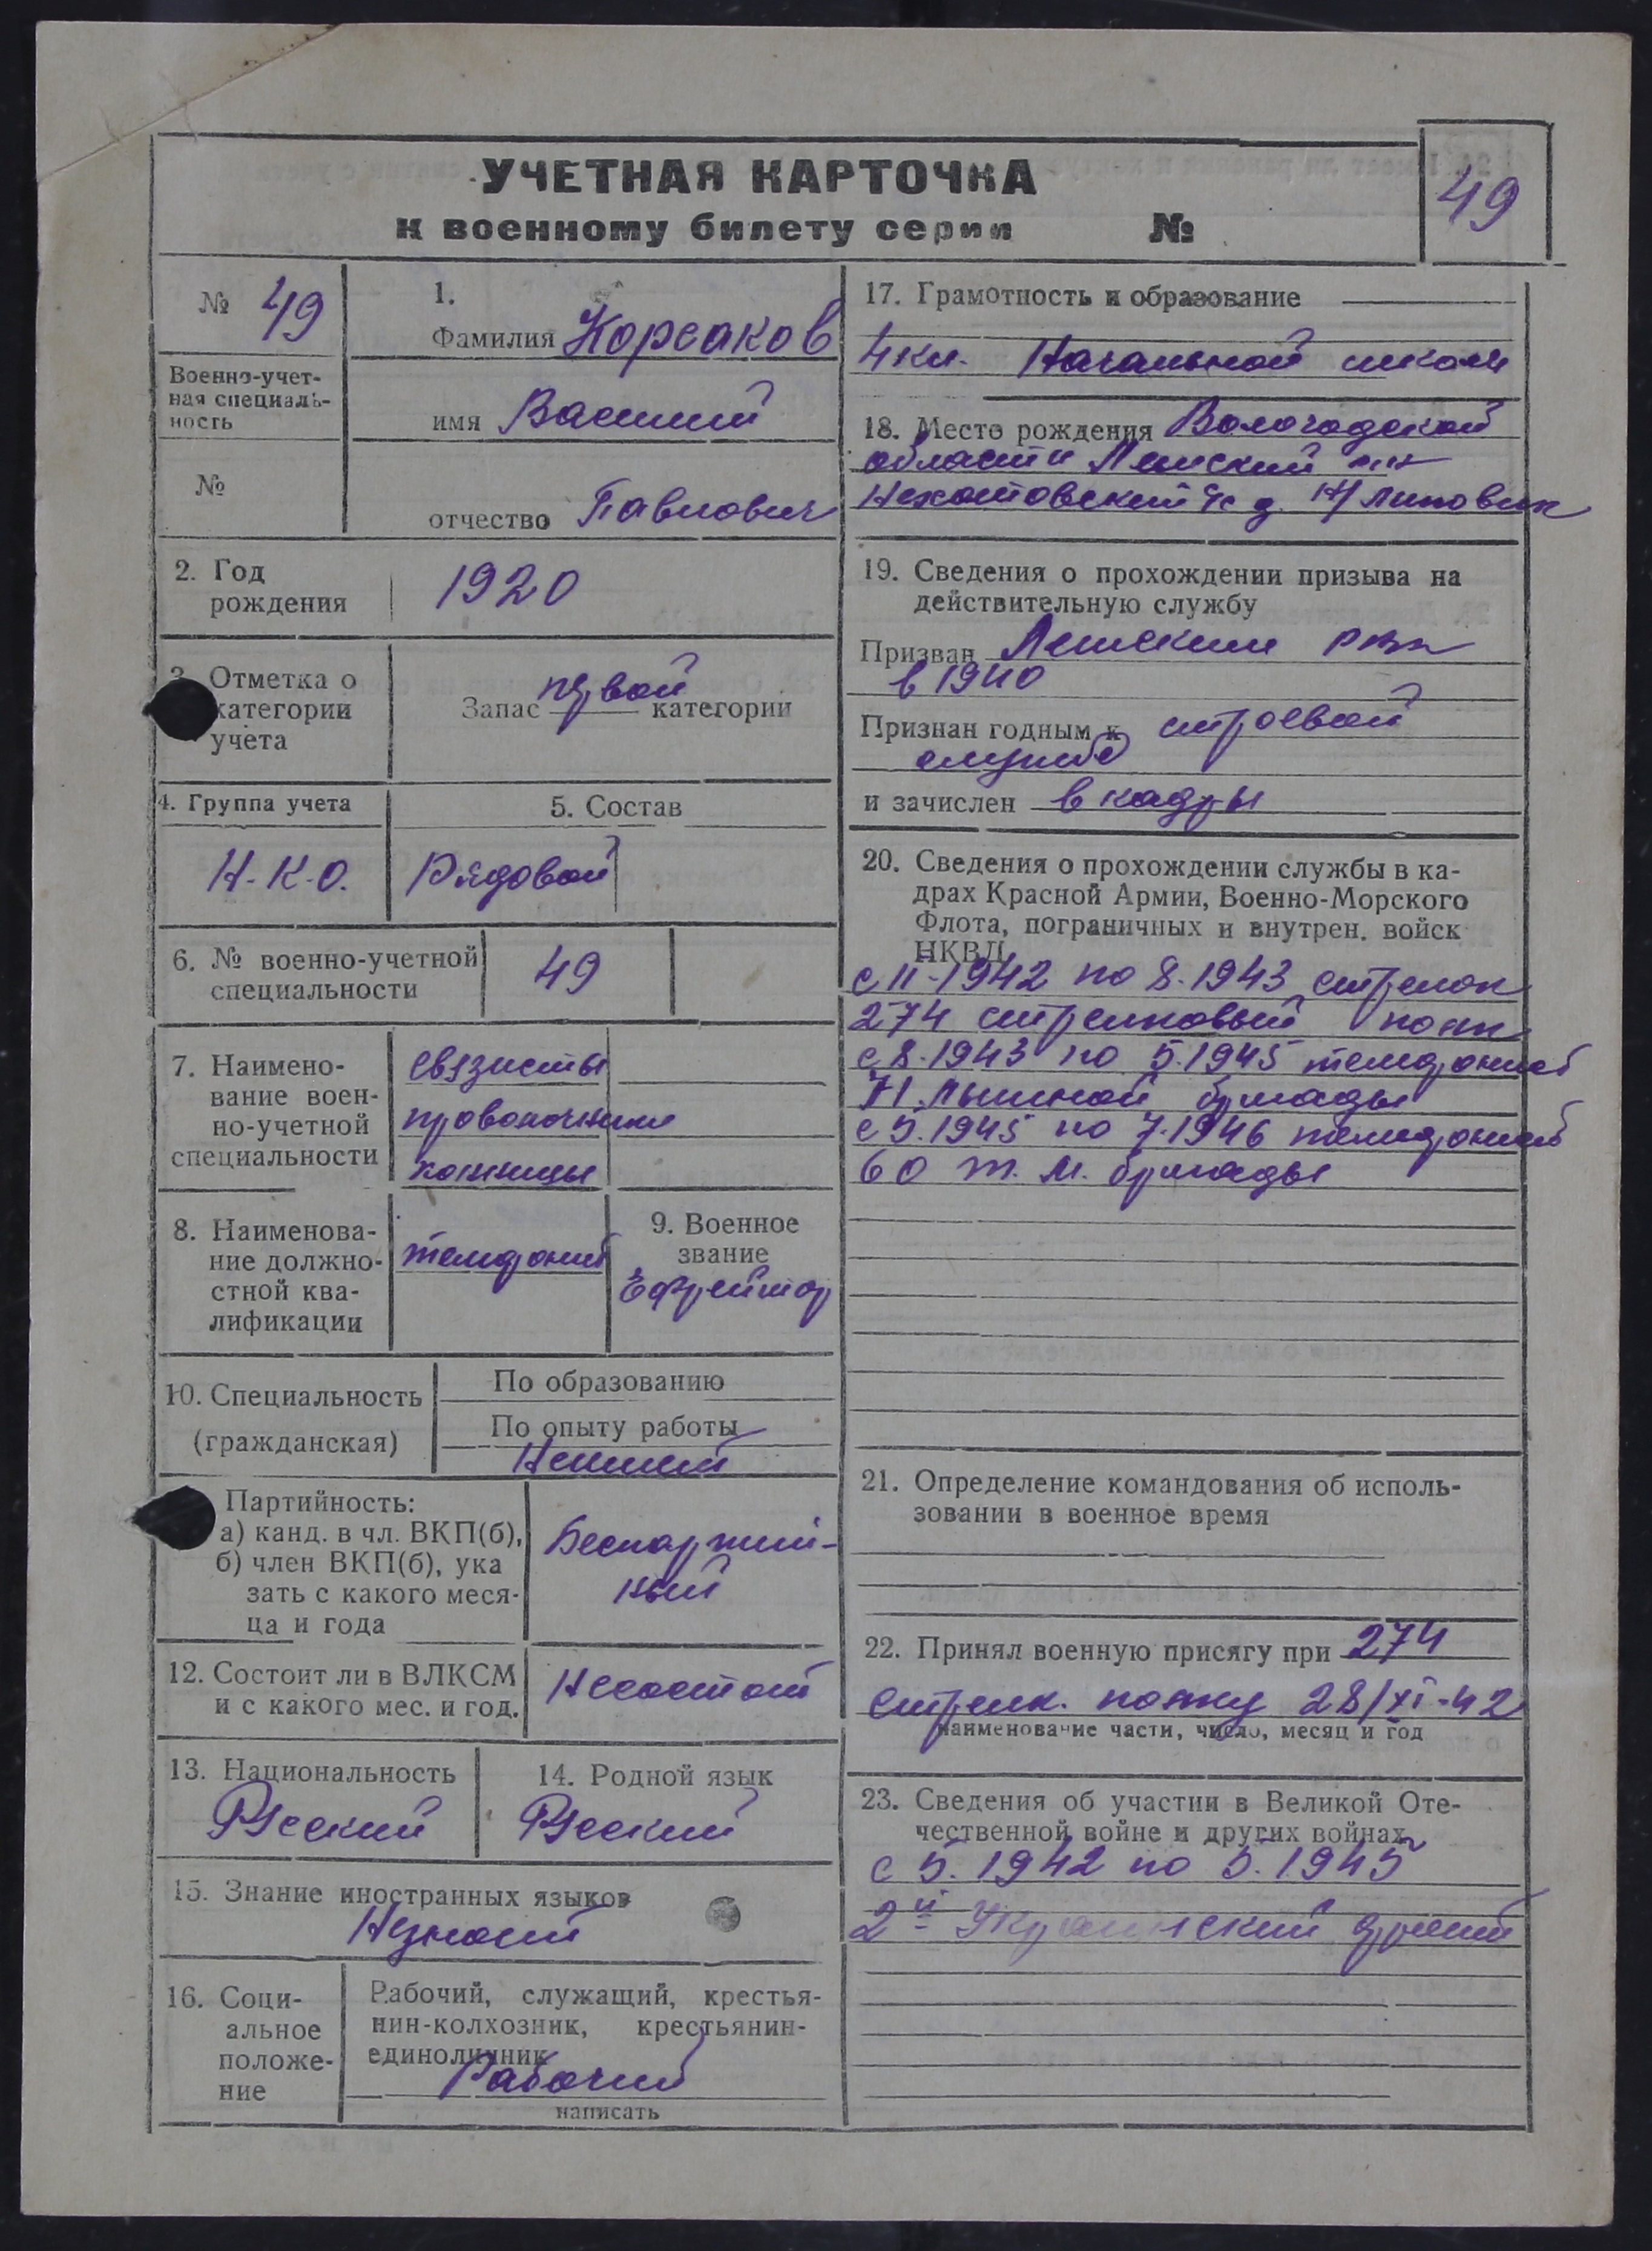 УЧЕТНАЯ КАРТОЧКА
к военному билету серии №
49
№ 49
Военно-учет-
ная специаль-
ность
№
1.
Фамилия Корсаков
имя Василий
отчество Павлович
2. Год
рождения
1920
3. Отметка о
категории
учета
Запас первой категории
4. Группа учета
Н.К.О.
5. Состав
Рядовой
6. № военно-учетной
специальности
49
7. Наимено-
вание воен-
но-учетной
специальности
связисты
проволочники
8. Наименова-
ние должно-
стной ква-
лификации
телефонист
9. Военное
звание
Ефрейтор
10. Специальность
(гражданская)
По образованию
По опыту работы
Партийность:
а) канд. в чл. ВКП(б),
б) член ВКП(б), ука
зать с какого меся-
ца и года
Беспартий-
ный
12. Состоит ли в ВЛКСМ
и с какого мес. и год.
Несостоит
13. Национальность
Русский
14. Родной язык
Русский
15. Знание иностранных языков
Незнает
16. Соци-
альное
положе-
ние
Рабочий, служащий, крестья-
нин-колхозник, крестьянин-
единоличник
Рабочий
написать
17. Грамотность и образование
4 кл. Начальной школы
18. Место рождения Вологодской
области
д.
19. Сведения о прохождении призыва на
действительную службу
Призван рвк
в 1940
Признан годным к строевой
службе
и зачислен в кадры
20. Сведения о прохождении службы в ка-
драх Красной Армии, Военно-Морского
Флота, пограничных и внутрен. войск
НКВД
с 11-1942 по 8.1943 стрелок
274 стрелковый полк
с 8.1943 по 5.1945 телефонист
71 лыжной бригады
с 5.1945 по 7.1946 телефонист
60 т. м. бригады
21. Определение командования об исполь-
зовании в военное время
22. Принял военную присягу при 274
стрелк. полку 28/XI-42
наименование части, число, месяц и год
23. Сведения об участии в Великой Оте-
чественной войне и других войнах
с 5.1942 по 5.1945
2й Украинский фронт